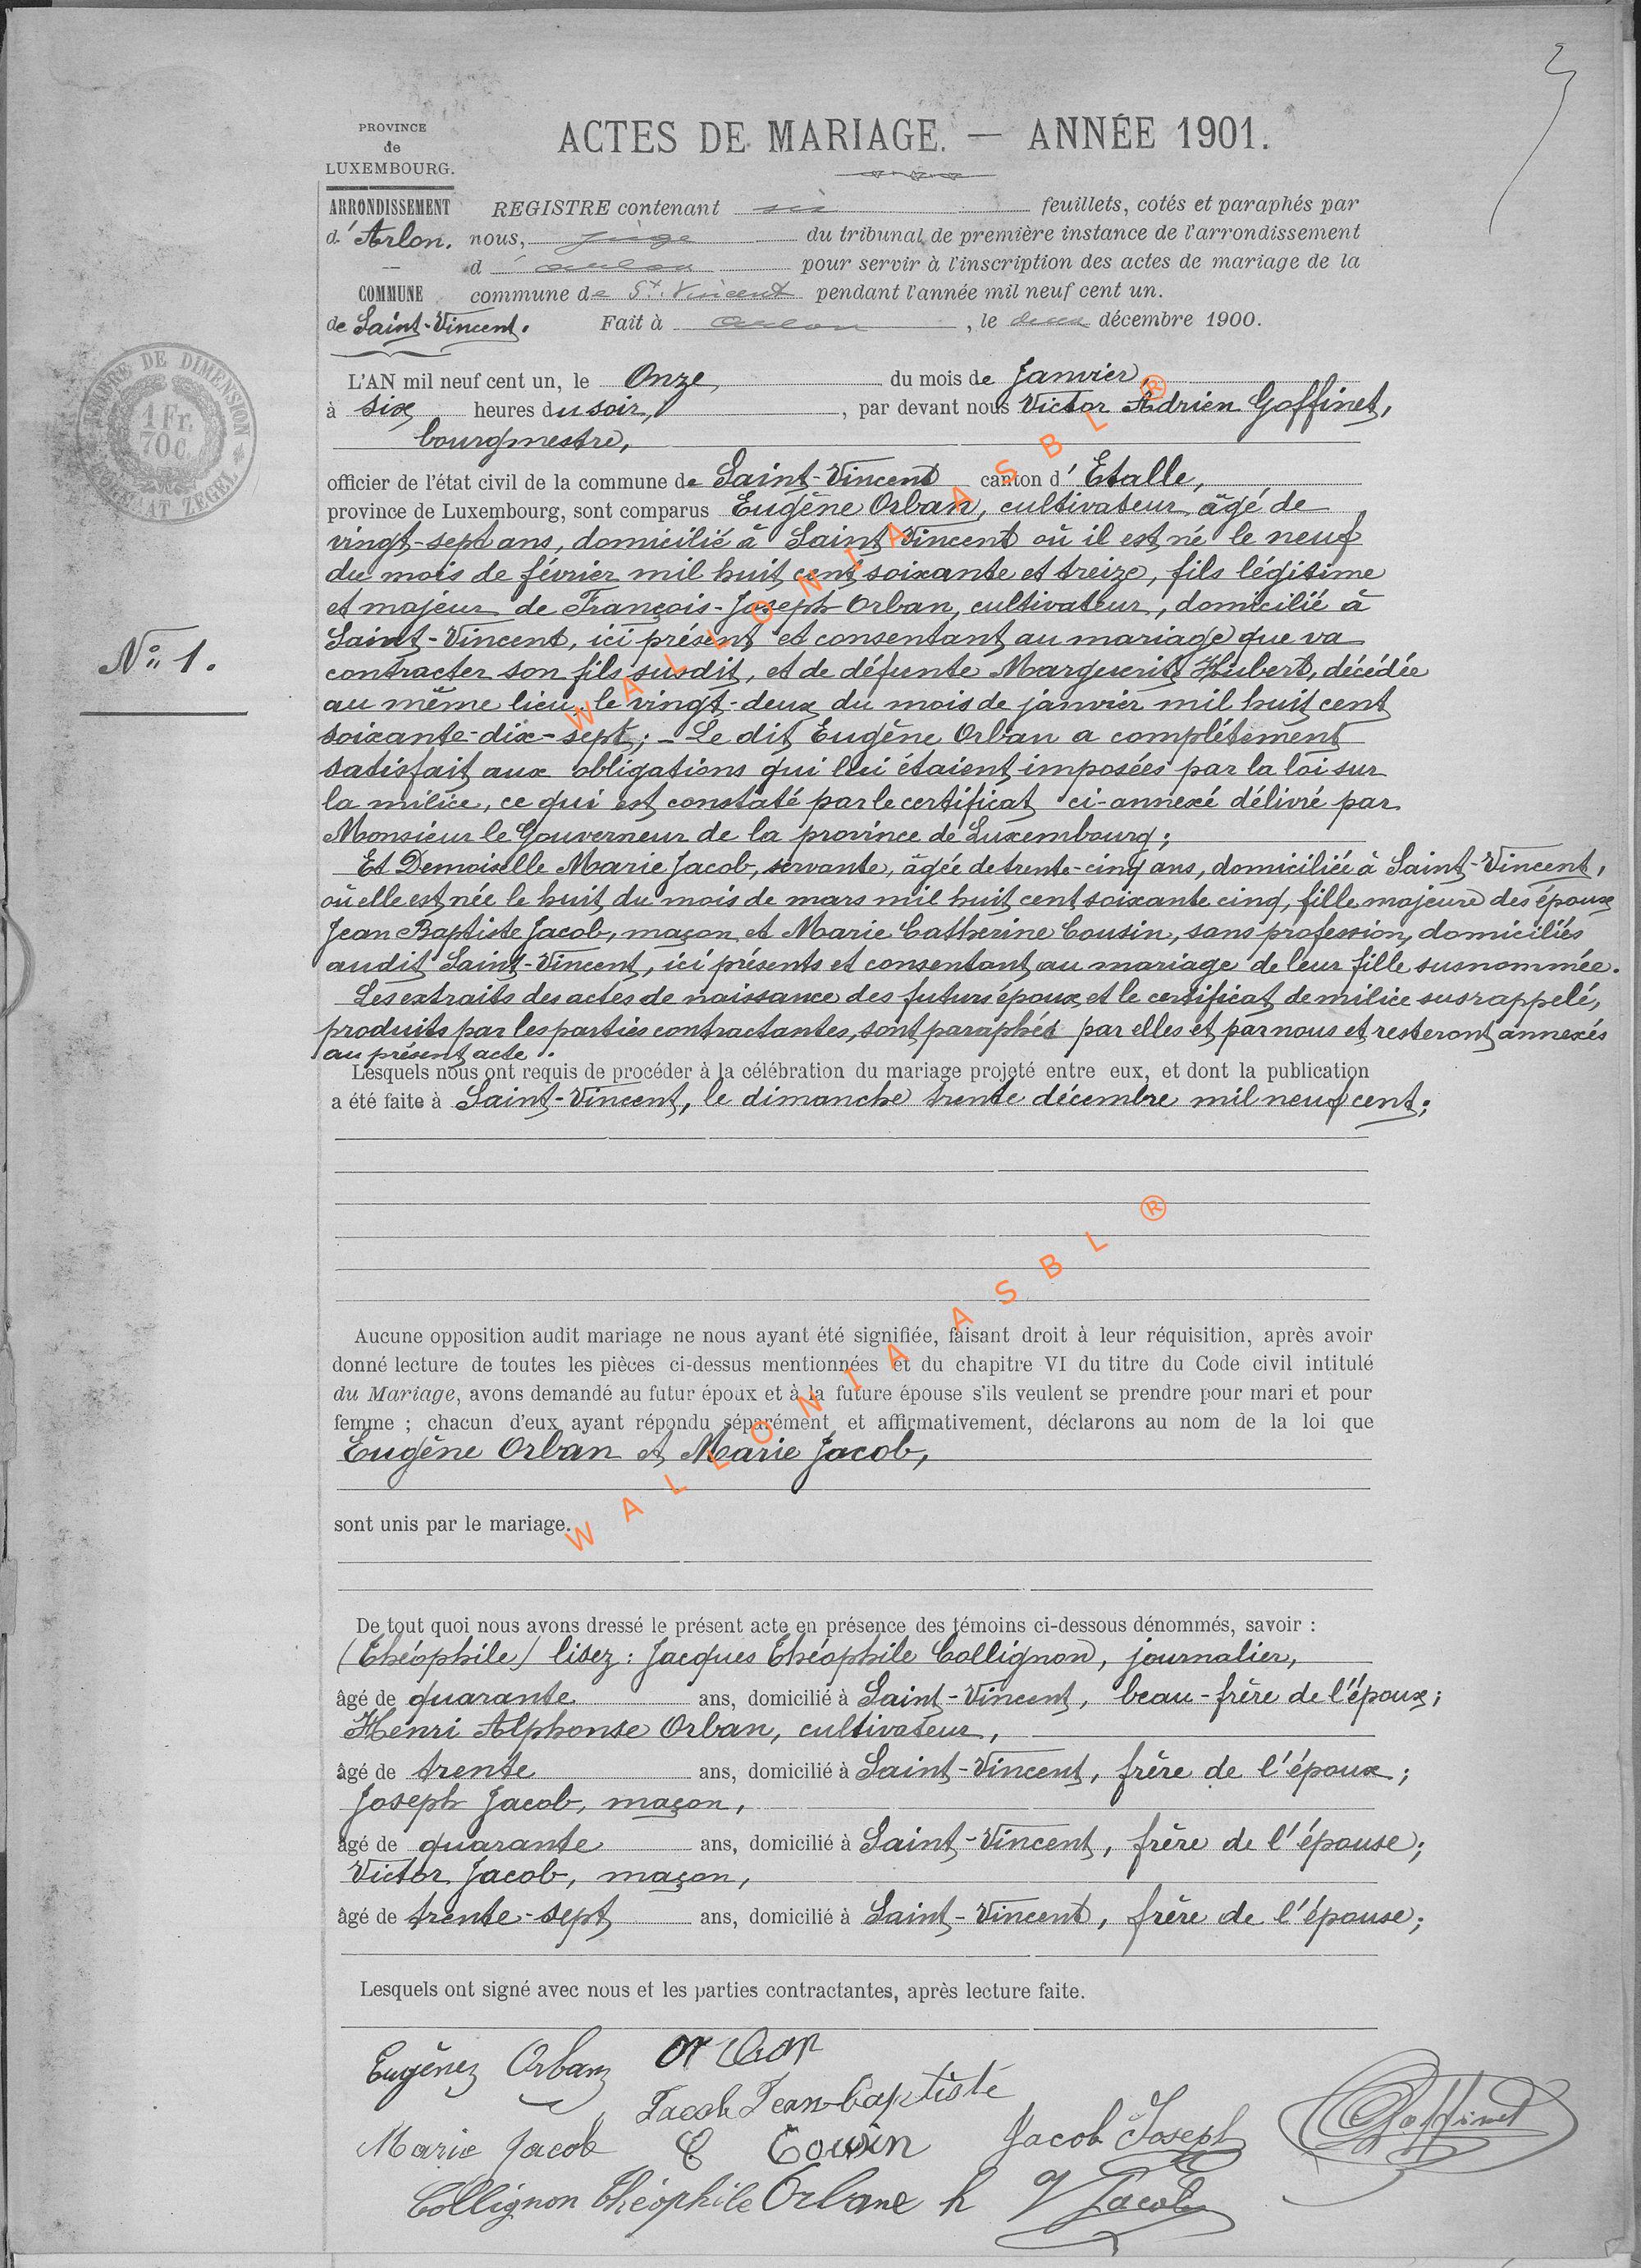 3
PROVINCE
de
LUXEMBOURG.
ACTES DE MARIAGE. — ANNÉE 1901.
ARRONDISSEMENT
d'Arlon.
COMMUNE
de Saint-Vincent.
REGISTRE contenant six feuillets, cotés et paraphés par
nous, juge du tribunal de première instance de l'arrondissement
d'arlon pour servir à l'inscription des actes de mariage de la
commune de St. Vincent pendant l'année mil neuf cent un.
Fait à arlon, le deux décembre 1900.
TIMBRE DE DIMENSION
1 Fr.
70 c.
ZEGEL
L'AN mil neuf cent un, le Onze du mois de Janvier,
à six heures du soir, par devant nous Victor Adrien Goffinet,
bourgmestre,
officier de l'état civil de la commune de Saint-Vincent canton d'Etalle,
province de Luxembourg, sont comparus Eugène Orban, cultivateur, âgé de
vingt-sept ans, domicilié à Saint-Vincent où il est né le neuf
du mois de février mil huit cent soixante et treize, fils légitime
et majeur de François-Joseph Orban, cultivateur, domicilié à
Saint-Vincent, ici présent et consentant au mariage que va
N° 1.
contracter son fils susdit, et de défunte Marguerite Hubert, décédée
au même lieu, le vingt-deux du mois de janvier mil huit cent
soixante-dix-sept; - Le dit Eugène Orban a complétement
satisfait aux obligations qui lui étaient imposées par la loi sur
la milice, ce qui est constaté par le certificat ci-annexé délivré par
Monsieur le Gouverneur de la province de Luxembourg;
Et Demoiselle Marie Jacob, servante, âgée de trente-cinq ans, domiciliée à Saint-Vincent,
où elle est née le huit du mois de mars mil huit cent soixante cinq, fille majeure des époux
Jean Baptiste Jacob, maçon et Marie Catherine Cousin, sans profession, domiciliés
audit Saint-Vincent, ici présents et consentant au mariage de leur fille susnommée.
Les extraits des actes de naissance des futurs époux et le certificat de milice susrappelé,
produits par les parties contractantes, sont paraphés par elles et par nous et resteront annexés
au présent acte.
Lesquels nous ont requis de procéder à la célébration du mariage projeté entre eux, et dont la publication
a été faite à Saint-Vincent, le dimanche trente décembre mil neuf cent;
Aucune opposition audit mariage ne nous ayant été signifiée, faisant droit à leur réquisition, après avoir
donné lecture de toutes les pièces ci-dessus mentionnées et du chapitre VI du titre du Code civil intitulé
du Mariage, avons demandé au futur époux et à la future épouse s'ils veulent se prendre pour mari et pour
femme ; chacun d'eux ayant répondu séparément et affirmativement, déclarons au nom de la loi que
Eugène Orban et Marie Jacob,
sont unis par le mariage.
De tout quoi nous avons dressé le présent acte en présence des témoins ci-dessous dénommés, savoir :
(Théophile) lisez : Jacques Théophile Collignon, journalier,
âgé de quarante ans, domicilié à Saint-Vincent, beau-frère de l'époux;
Henri Alphonse Orban, cultivateur,
âgé de trente ans, domicilié à Saint-Vincent, frère de l'époux;
Joseph Jacob, maçon,
âgé de quarante ans, domicilié à Saint-Vincent, frère de l'épouse;
Victor Jacob, maçon,
âgé de trente-sept ans, domicilié à Saint-Vincent, frère de l'épouse;
Lesquels ont signé avec nous et les parties contractantes, après lecture faite.
Eugène Orban orban
Jacob Jean baptiste
Marie Jacob C Cousin Jacob Joseph Goffinet
Collignon Théophile Orban h V Jacob
WALLONIA ASBL ®
WALLONIA ASBL ®